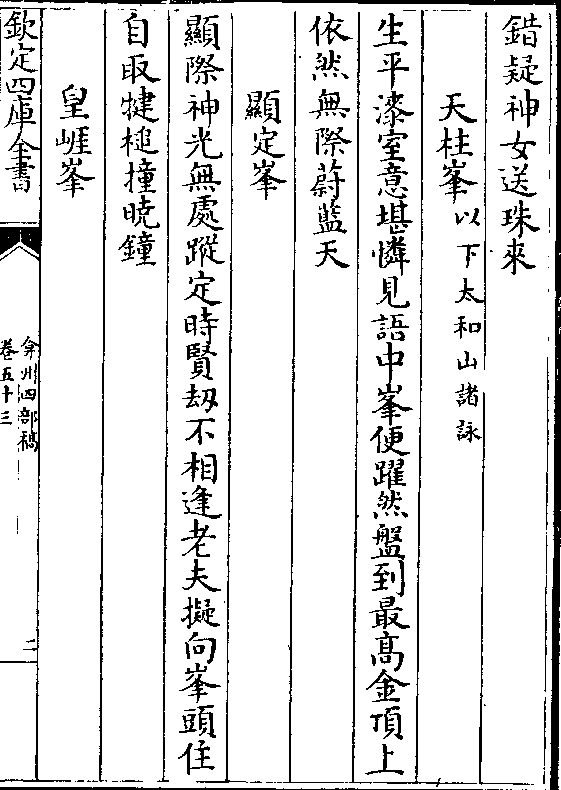 錯疑神女送珠來
天柱峯以下太和山諸詠
生平漆室意堪憐見語中峯便躍然盤到最高金頂上
依然無際蔚藍天
顯定峯
顯際神光無處蹤定時賢劫不相逢老夫擬向峯頭住
自取犍槌撞曉鐘
皇崕峯
欽定四庫全書
弇州四部稿
卷五十三
二